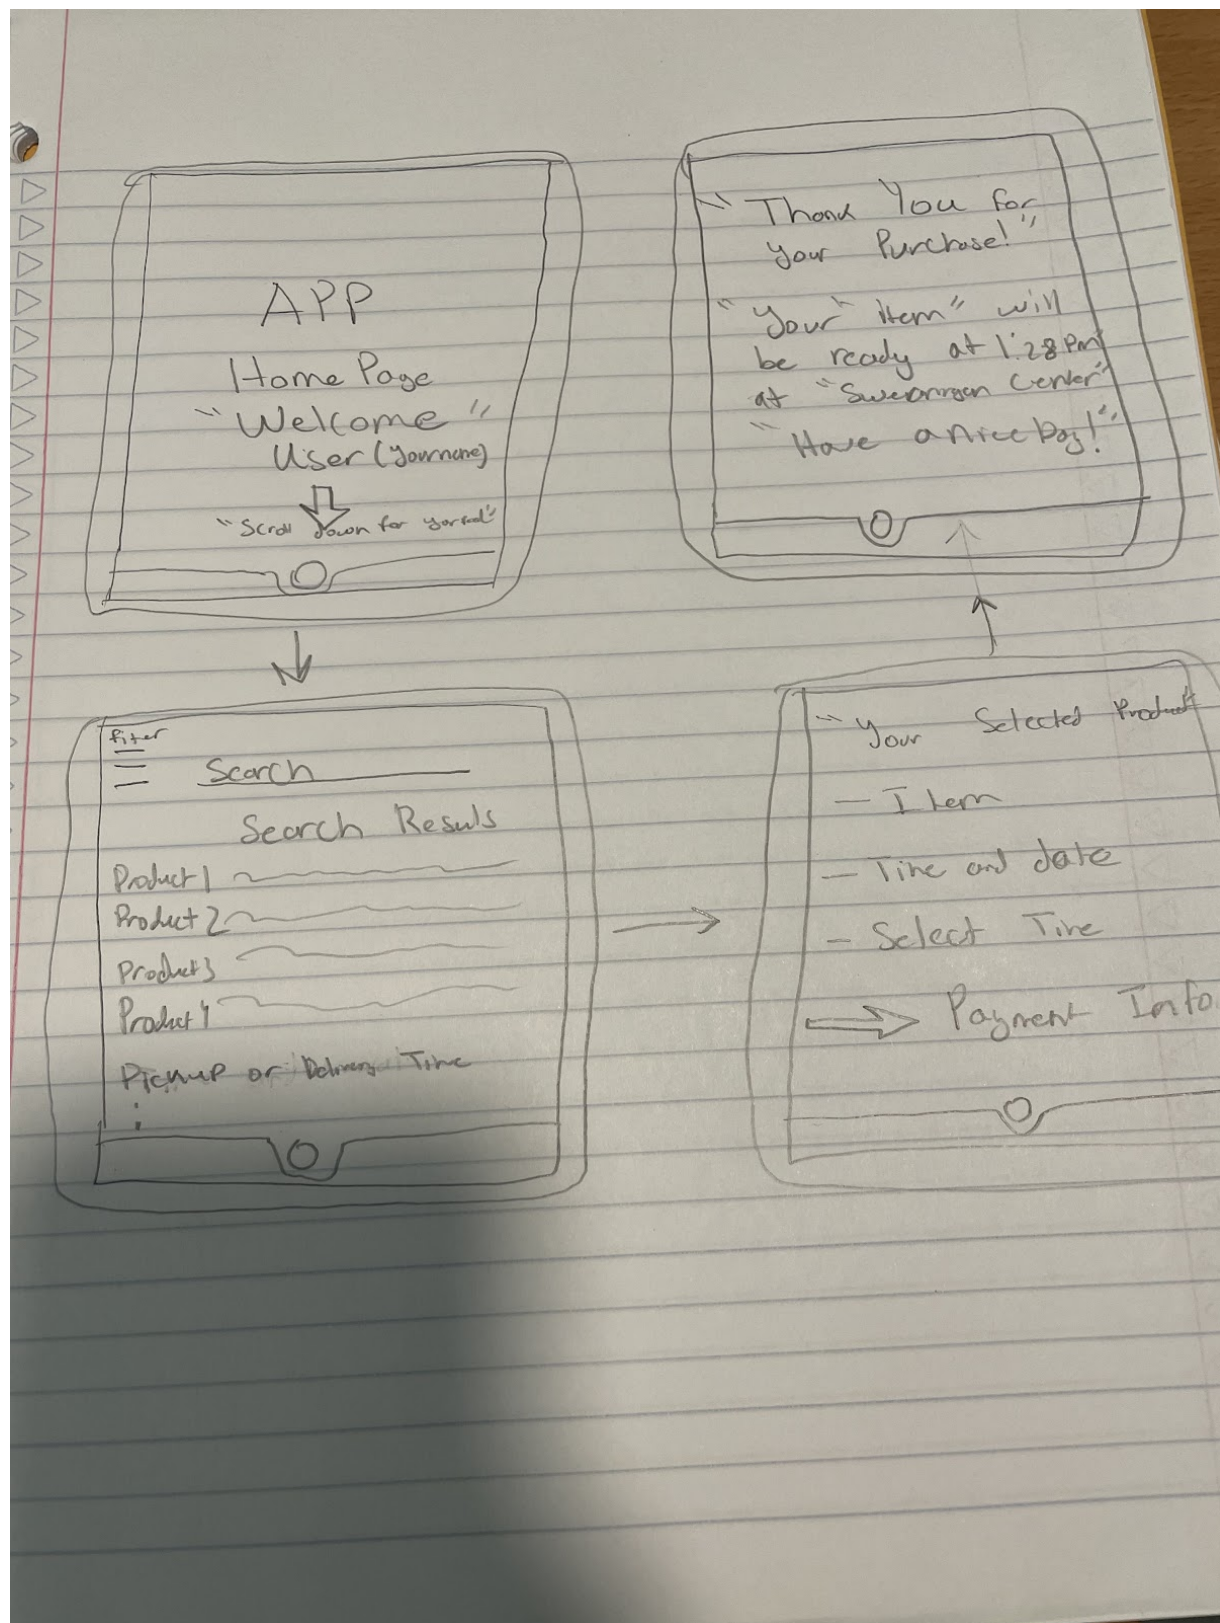 APP
Home Page
"Welcome"
User (your name)
"Scroll down for
filter
Search
Search Resuls
Product 1
Product 2
Product 3
Product 4
Pickup or Delivery Time
"Your Selected Product
- Item
- Time and date
- Select Time
Payment Info.
"Thank You for
your Purchase!"
"Your "item" will
be ready at 1:28 PM
at "Swearingen Center"
"Have a nice Day!"